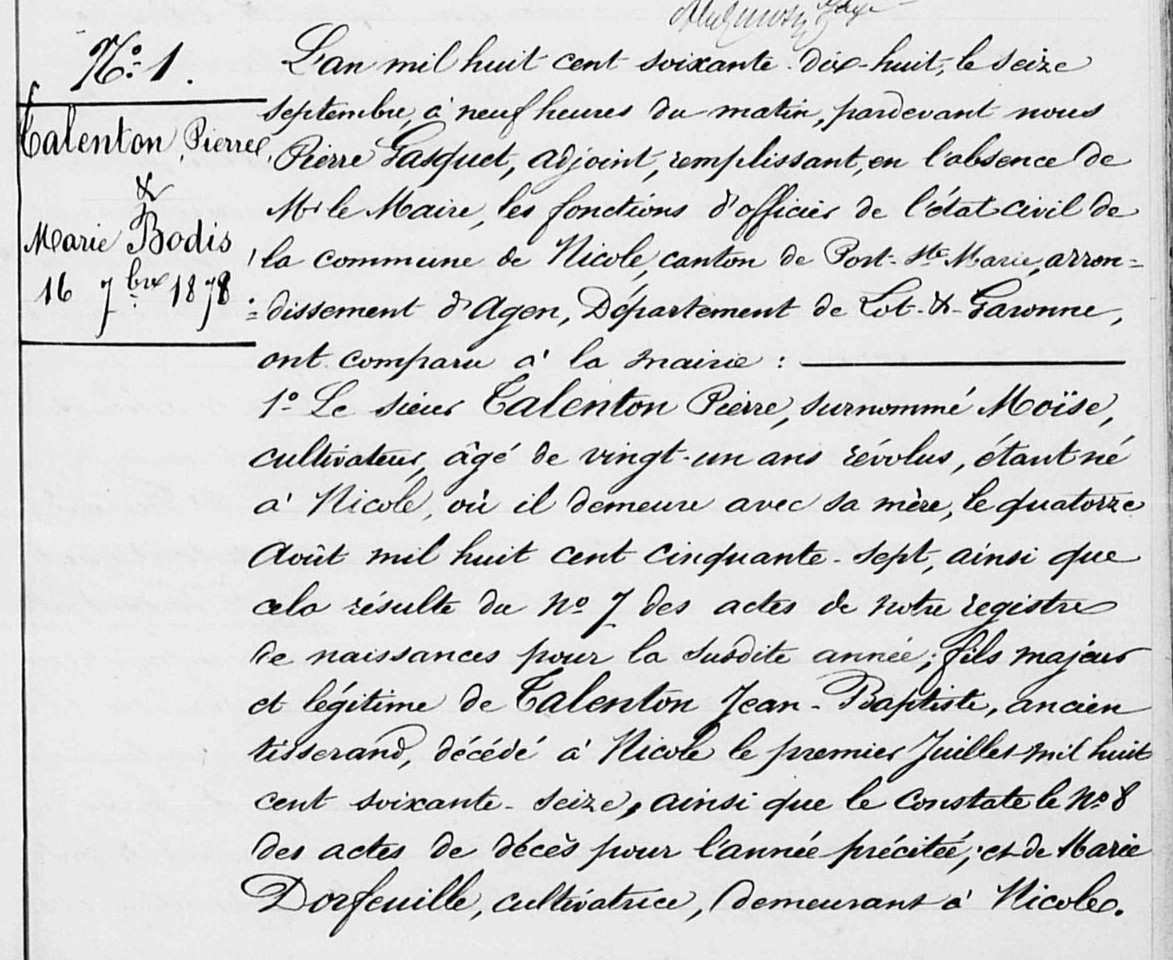 N.º 1.
Talenton Pierre
&
Marie Bodis
16 7bre 1878
L'an mil huit cent soixante-dix-huit, le seize
septembre, à neuf heures du matin, pardevant nous
Pierre Gasquet, adjoint, remplissant, en l'absence de
Mr le Maire, les fonctions d'officier de l'état civil de
la commune de Nicole, canton de Port-Ste Marie, arron=
=dissement d'Agen, Département de Lot-&-Garonne,
ont comparu à la mairie :
1º Le sieur Talenton Pierre, surnommé Moïse,
cultivateur, âgé de vingt-un ans révolus, étant né
à Nicole, où il demeure avec sa mère, le quatorze
Août mil huit cent cinquante-sept, ainsi que
cela résulte du Nº 7 des actes de notre registre
de naissances pour la susdite année; fils majeur
et légitime de Talenton Jean-Baptiste, ancien
tisserand, décédé à Nicole le premier Juillet mil huit
cent soixante-seize, ainsi que le constate le Nº 8
des actes de décès pour l'année précitée; et de Marie
Dorfeuille, cultivatrice, demeurant à Nicole.